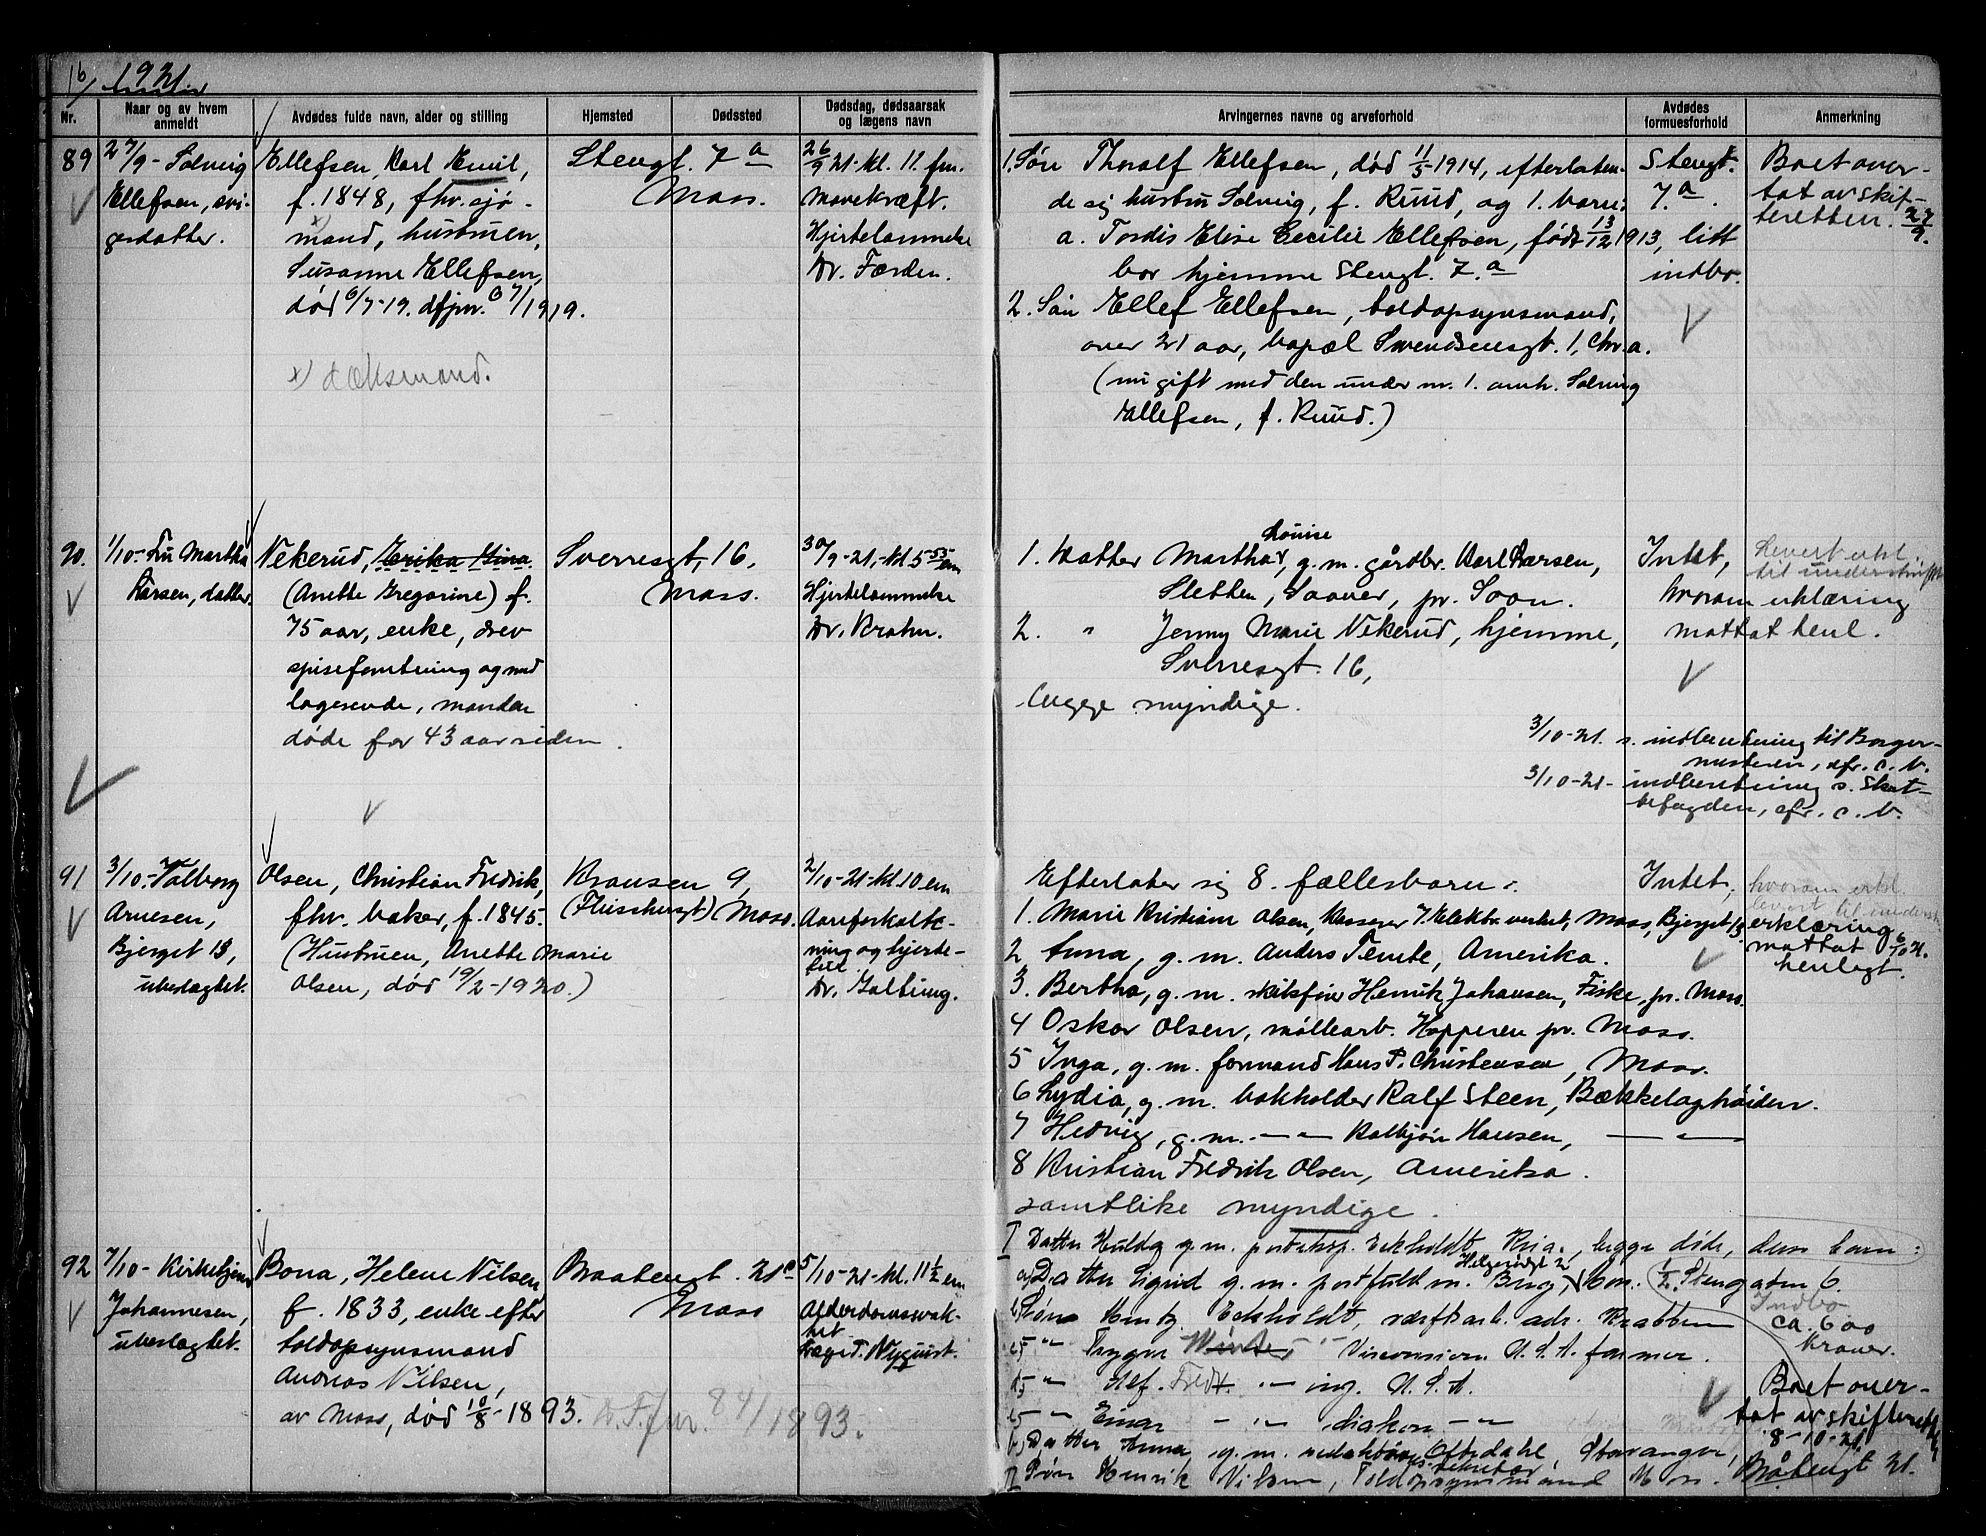 16/ 1921
Nr.
Naar og av hvem anmeldt
Avdødes fulde navn, alder og stilling
Hjemsted
Dødssted
Dødsdag, dødsaarsak og lægens navn
Arvingernes navne og arveforhold
Avdødes formuesforhold
Anmerkning
89
27/9 - Solveig
Ellefsen, svi-
gerdatter.
Ellefsen, Karl Emil,
f. 1848, fhv. sjø-
x)
mand, hustruen,
Susanne Ellefsen,
død 6/7-19. dfjnr. 67/1919.
x) dæksmand.
Stengt. 7a
Moss.
26/9 21. kl. 11. fm.
Mavekræft.
Hjertelammelse
Dr. Færden.
1. Søn Thoralf Ellefsen, død 11/5 1914, efterlaten-
de sig hustru Solveig, f. Ruud, og 1. barn:
a. Tordis Elise Cecilie Ellefsen, født 13/12 1913,
bor hjemme Stengt. 7.a
2. Søn Ellef Ellefsen, toldopsynsmand,
over 21 aar, bopæl Svendsensgt. 1, Chr.a.
(nu gift med den under nr. 1. omh. Solveig
Ellefsen, f. Ruud.)
Stengt.
7.a.
litt
indbo.
Boet over-
tat av skif-
teretten. 27/9.
90.
1/10 - Fru Martha
Larsen, datter.
Nekerud, Erika Gina
(Anette Gregorine) f.
75 aar, enke, drev
spiseforretning og med
logerende, manden
døde for 43 aar siden.
Sverresgt, 16,
Moss.
30/9-21.-kl 5 55 em
Hjertelammelse
Dr. Krohn.
1. Datter Martha Louise, g. m. gårdbr. Karl Larsen,
Sletten, Saaner, pr. Soon.
2. " Jenny Marie Nekerud, hjemme,
Sverresgt. 16,
begge myndige.
Intet,
hvorom erklæring
mottat henl.
Levert erkl.
til underskrift
3/10-21. s. indberetning til Borger-
mesteren, cfr. c. b.
3/10-21 - indberetning s. Skat-
befogden, cfr. c. b.
91
3/10. - Valborg
Arnesen,
Bjerget 13,
ubeslægtet.
Olsen, Christian Fredrik,
fhv. baker, f. 1845.
(Hustruen, Anette Marie
Olsen, død 19/2-1920.)
Kransen 9,
Moss.
2/10-21-kl 10 em
Aareforkalk-
ning og hjerte-
feil
Efterlater sig 8. fællesbarn:
1. Marie Kristiane Olsen, kasserer v. Elektr. verket, Moss, Bjerget 13
2 Anna, g. m. Anders Tembe, Amerika.
3. Bertha, g. m. skibsfører Henrik Johansen, Fiske, pr. Moss.
4 Oskar Olsen, møllearb. Hoppern pr. Moss.
5 Inga, g. m. formand Hans P. Christensen, Moss.
6 Lydia, g. m. bokholder Ralf Steen, Bækkelagshøiden.
7 Hedvig, g. m. — " — Kolbjørn Hansen, — " —
8 Kristian Fredrik Olsen, Amerika.
samtlike myndige.
Intet,
hvorom erkl.
levert til underskr.
erklæring
mottat 6/10 21.
henlagt.
92
7/10 - Kirketjener
Johannesen,
ubeslægtet.
Bona, Helene Nilsen,
f. 1833, enke efter
toldopsynsmand
Andreas Nilsen,
av Moss, død 10/8-1893. 84/1893.
Braatengt. 21c
Moss
5/10-21-kl. 11 1/2 em
Alderdomssvak-
het
Nyquist.
I Datter Hulda g. m. Eckholdt, Kria., begge døde, deres barn:
a) Datter Sigrid g. m. postfuldm. Bryn, Helgesensgt 2
Søn Hentz Eckholdt, verkstarb. adr. Krabben
c) " Trygve " Visconsin U. S. A. farmer.
" Alf. Fredr. " ing. U. S. A.
" Einar " diakon " "
Datter Anna g. m. redaktør Oftedahl, Stavanger,
II Søn Henrik Nilsen, Toldopsynsmand Moss.
1/2 Stengaten 6.
Indbo
ca. 600
kroner.
Boet over-
tat av skifteretten
8-10-21.
Bråtengt 21.